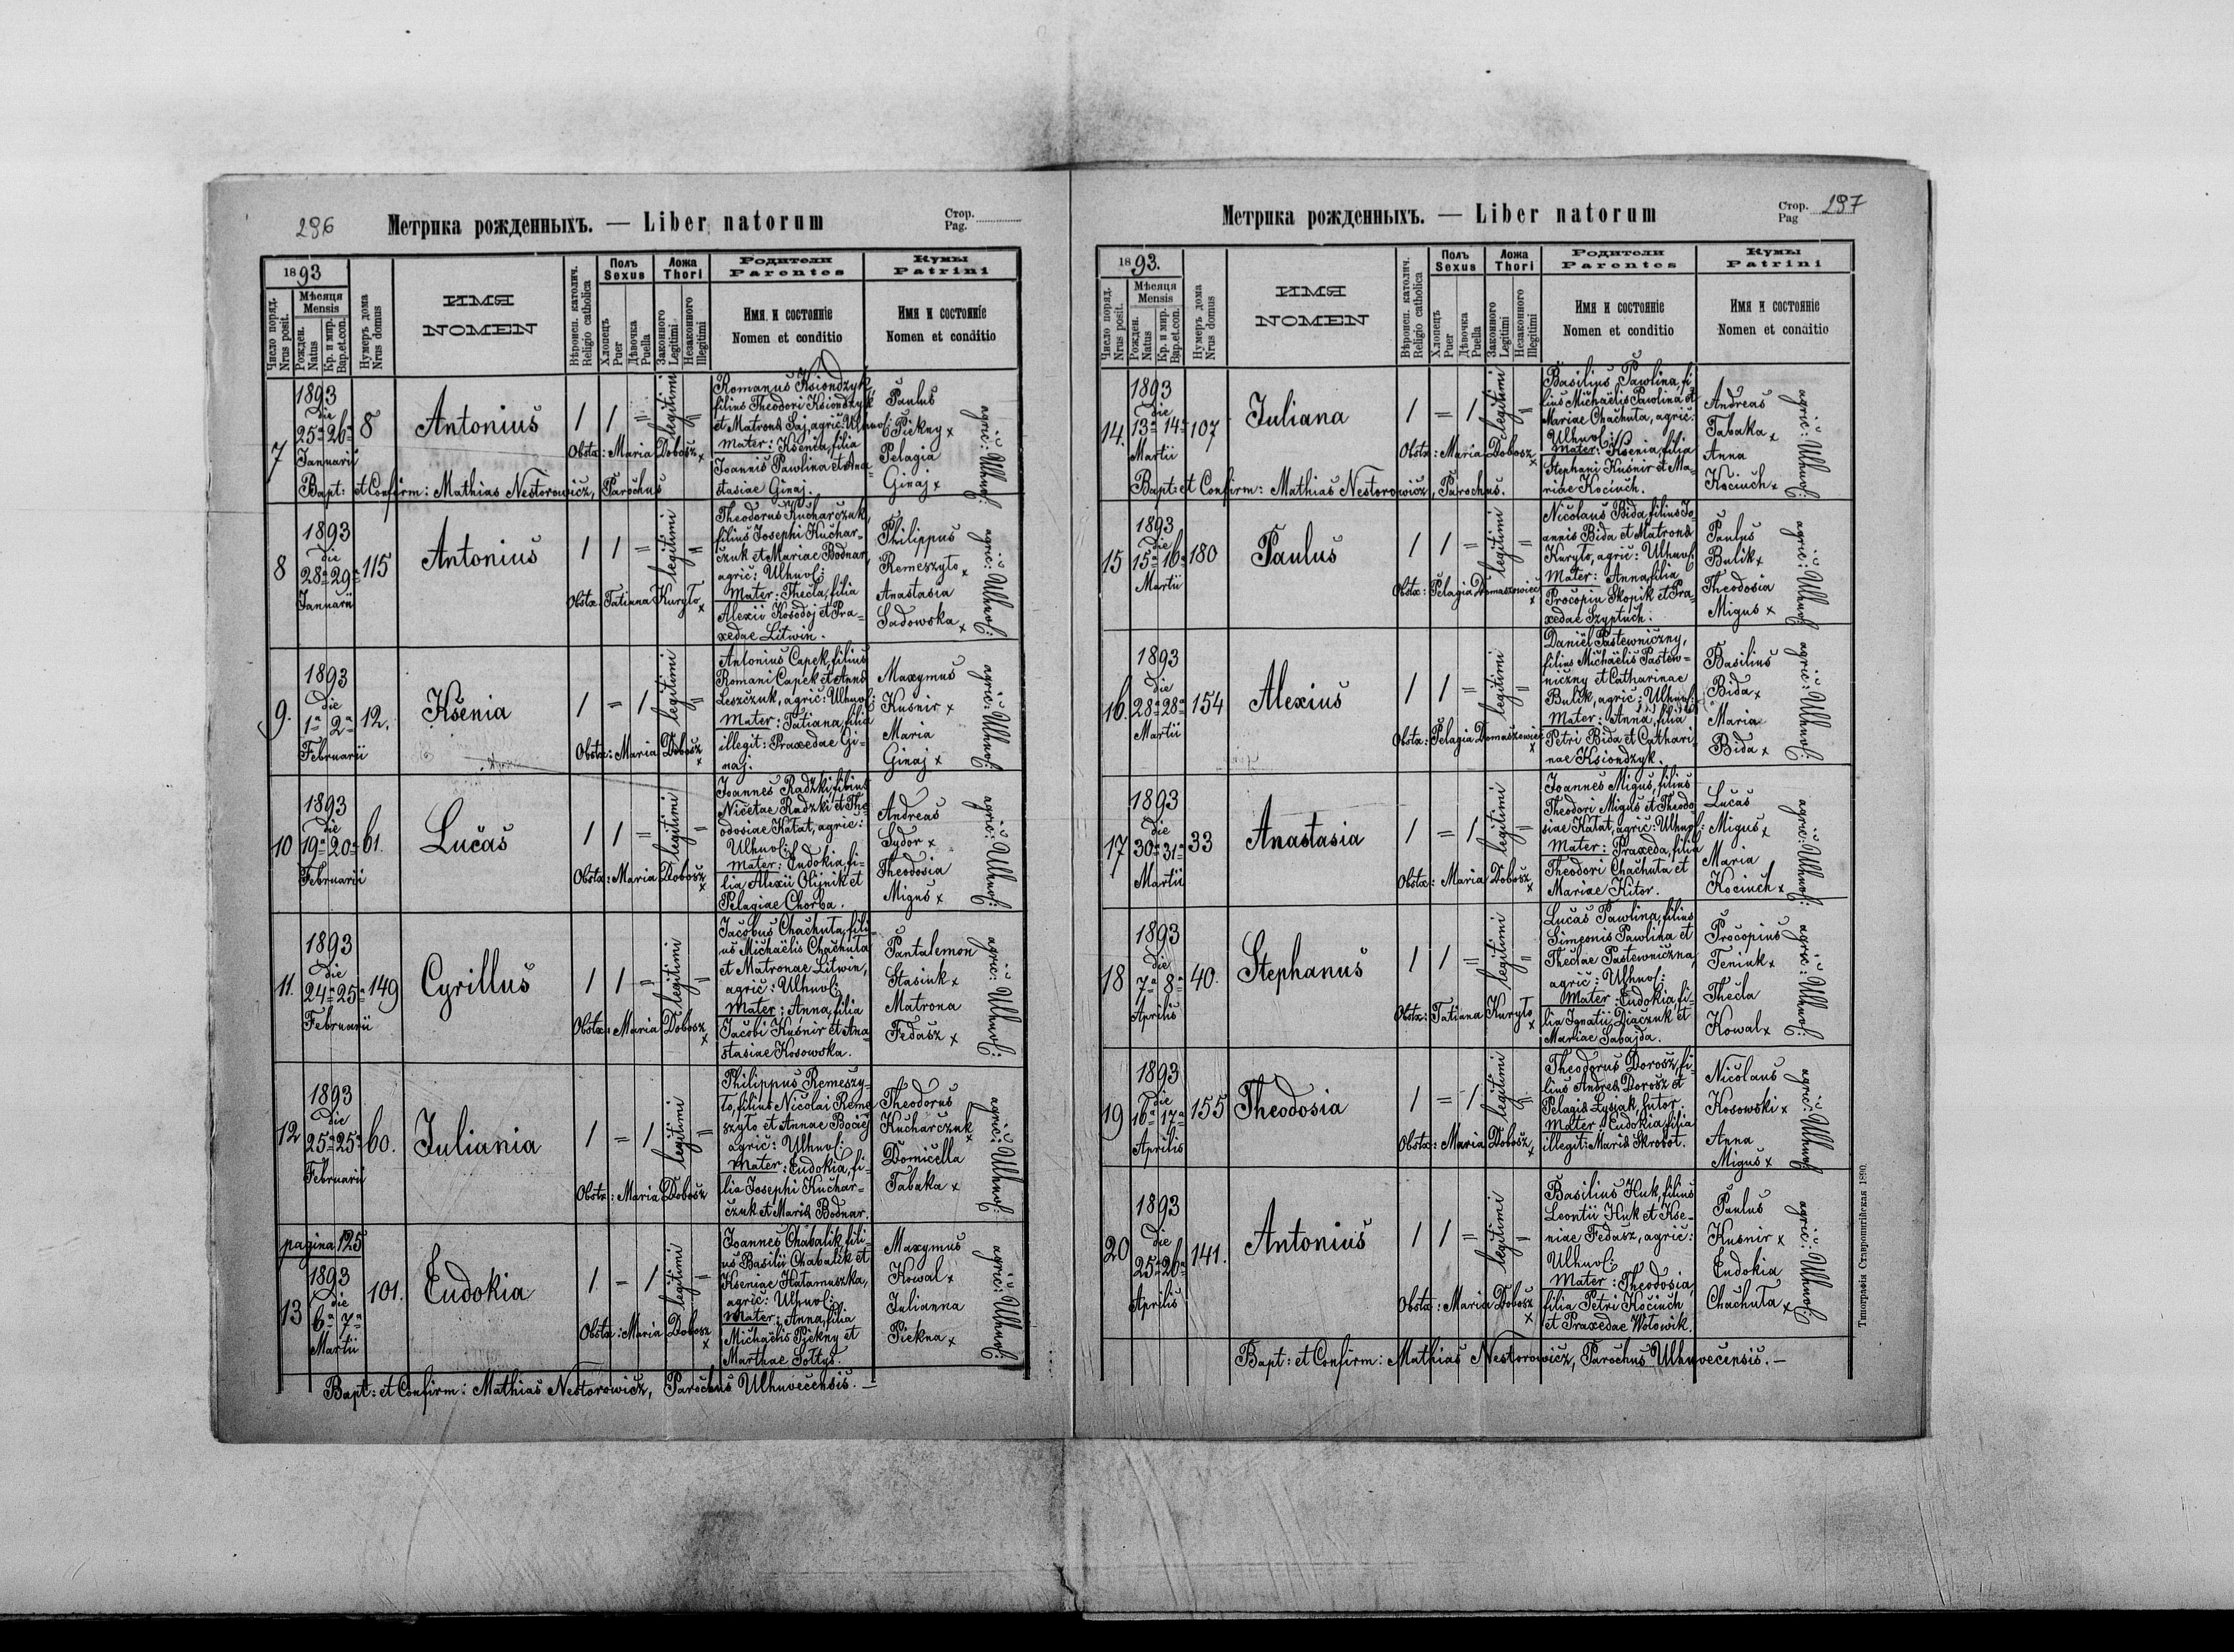 296
Метрика рожденныхъ. — Liber natorum
Стор.
Pag.
1893
Число поряд.
Nrus posit.
Мѣсяця
Mensis
Рожден.
Natus
Кр. и мир.
Bap.et.con.
Нумеръ дома
Nrus domus
ИМЯ
NOMEN
Вѣроисп. католич.
Religio catholica
Полъ
Sexus
Хлопецъ
Puer
Дѣвочка
Puella
Ложа
Thori
Законного
Legitimi
Незаконного
Illegitimi
Родители
Parentes
Имя и состоянíе
Nomen et conditio
Кумы
Patrini
Имя и состоянíе
Nomen et conditio
7
1893
die
25ª 26ª
Januarii
8
Antonius
1 1 = legitimi =
Obstx: Maria Dobosz x
Romanus Ksiondzyk,
filius Theodori Ksiondzyk
et Matronæ Saj, agric: Uhnov:
Mater: Ksenia, filia
Joannis Pawlina et Ana=
stasiae Ginaj.
Paulus
Piekny x
Pelagia
Ginaj x
agric: Uhnov:
Bapt: et Confirm: Mathias Nestorowicz, Parochus
8
1893
die
28ª 29ª
Januarii
115
Antonius
1 1 = legitimi =
Obstx: Tatiana Kuryło x
Theodorus Kucharczuk,
filius Josephi Kuchar=
czuk et Mariae Bodnar,
agric: Uhnov:
Mater: Thecla, filia
Alexii Kosodoj et Pra=
xedae Litwin.
Philippus
Remeszyło x
Anastasia
Sadowska x
agric: Uhnov:
9.
1893
die
1ª 2ª
Februarii
12.
Ksenia
1 = 1 legitimi =
Obstx: Maria Dobosz x
Antonius Capek, filius
Romani Capek et Annæ
Leszczuk, agric: Uhnov:
Mater: Tatiana, filia
illegit: Praxedae Gi=
naj.
Maxymus
Kusnir x
Maria
Ginaj x
agric: Uhnov:
10
1893
die
19ª 20ª
Februarii
61.
Lucas
1 1 = legitimi =
Obstx: Maria Dobosz x
Joannes Radzki, filius
Nicetae Radzki et The=
odosiae Katat, agric:
Uhnov:
Mater: Eudokia, fi=
lia Alexii Olijnik et
Pelagiae Chorba.
Andreas
Sydor x
Theodosia
Migus x
agric: Uhnov:
11.
1893
die
24ª 25ª
Februarii
149
Cyrillus
1 1 = legitimi =
Obstx: Maria Dobosz x
Jacobus Chachuta, fili=
us Michaëlis Chachuta
et Matronae Litwin,
agric: Uhnov:
Mater: Anna, filia
Jacobi Kuśnir et Ana=
stasiae Kosowska.
Pantalemon
Stasiuk x
Matrona
Fedasz x
agric: Uhnov:
12
1893
die
25ª 25ª
Februarii
60.
Juliania
1 = 1 legitimi =
Obstx: Maria Dobosz
Philippus Remeszy=
ło, filius Nicolai Reme=
szyło et Annae Bociej
agric: Uhnov:
Mater: Eudokia, fi=
lia Josephi Kuchar=
czuk et Mariæ Bodnar.
Theodorus
Kucharczuk x
Domicella
Tabaka x
agric: Uhnov:
pagina 125
13
1893
die
6ª 7ª
Martii
101.
Eudokia
1 = 1 legitimi =
Obstx: Maria Dobosz x
Joannes Chabalik, fili=
us Basilii Chabalik et
Kseniae Hatamuszka,
agric: Uhnov:
Mater: Anna, filia
Michaëlis Piekny et
Marthae Sołtys.
Maxymus
Kowal x
Julianna
Piekna x
agric: Uhnov:
Bapt: et Confirm: Mathias Nestorowicz, Parochus Uhnuvecensis. —
Метрика рожденныхъ. — Liber natorum
Стор.
Pag
297
1893.
Число поряд.
Nrus posit.
Мѣсяця
Mensis
Рожден.
Natus
Кр. и мир.
Bap.et.con.
Нумеръ дома
Nrus domus
ИМЯ
NOMEN
Вѣроисп. католич.
Religio catholica
Полъ
Sexus
Хлопецъ
Puer
Дѣвочка
Puella
Ложа
Thori
Законного
Legitimi
Незаконного
Illegitimi
Родители
Parentes
Имя и состоянíе
Nomen et conditio
Кумы
Patrini
Имя и состоянíе
Nomen et conditio
14.
1893
die
13ª 14ª
Martii
107
Juliana
1 = 1 legitimi =
Obstx: Maria Dobosz x
Basilius Pawlina, fi
lius Michaëlis Pawlina et
Mariae Chachuta, agric:
Uhnov:
Mater: Ksenia, filia
Stephani Kuśnir et Ma=
riae Kociuch.
Andreas
Tabaka x
Anna
Kociuch x
agric: Uhnov:
Bapt: et Confirm: Mathias Nestorowicz, Parochus.
15
1893
die
15ª 16ª
Martii
180
Paulus
1 1 = legitimi =
Obstx: Pelagia Domaszowiec x
Nicolaus Bida, filius Jo=
annis Bida et Matronæ
Kuryło, agric: Uhnov:
Mater: Anna, filia
Procopiu Skopik et Pra=
xedae Szyptuch.
Paulus
Bulik x
Theodosia
Migus x
agric: Uhnov:
16.
1893
die
28ª 28ª
Martii
154
Alexius
1 1 = legitimi =
Obstx: Pelagia Domaszowiec x
Daniel Pastewniczny,
filius Michaëlis Pastew=
niczny et Catharinae
Bulik, agric: Uhnov:
Mater: Anna, filia
Petri Bida et Cathari
nae Ksiondzyk.
Basilius
Bida x
Maria
Bida x
agric: Uhnov:
17
1893
die
30ª 31ª
Martii
33
Anastasia
1 = 1 legitimi =
Obstx: Maria Dobosz x
Joannes Migus, filius
Theodori Migus et Theodo
siae Katat, agric: Uhnov:
Mater: Praxeda, filia
Theodori Chachuta et
Mariae Kitor.
Lucas
Migus x
Maria
Kociuch x
agric: Uhnov:
18
1893
die
7ª 8ª
Aprilis
40.
Stephanus
1 1 = legitimi =
Obstx: Tatiana Kuryło x
Lucas Pawlina, filius
Simeonis Pawlina et
Theclae Pastewniczna,
agric: Uhnov:
Mater: Eudokia, fi=
lia Ignatii Diaczuk et
Mariae Sabajda.
Procopius
Teniuk x
Thecla
Kowal x
agric: Uhnov:
19
1893
die
16ª 17ª
Aprilis
155
Theodosia
1 = 1 legitimi =
Obstx: Maria Dobosz x
Theodorus Dorosz, fi=
lius Andreæ Dorosz et
Pelagiæ Łysiak, sutor.
Mater: Eudokia, filia
illegit: Mariæ Skrobot.
Nicolaus
Kosowski x
Anna
Migus x
agric: Uhnov:
20
1893
die
25ª 26ª
Aprilis
141.
Antonius
1 1 = legitimi =
Obstx: Maria Dobosz x
Basilius Huk, filius
Leontii Huk et Kse=
niae Fedasz, agric:
Uhnov:
Mater: Theodosia,
filia Petri Kociuch
et Praxedae Wołowik.
Paulus
Kusnir x
Eudokia
Chachuta x
agric: Uhnov:
Bapt: et Confirm: Mathias Nestorowicz, Parochus Uhnuvecensis. —
Типографія Ставропигійская 1890.